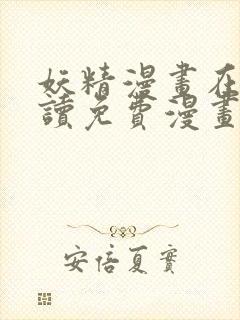 妖精漫畫在
讀免費漫畫
安倍夏實